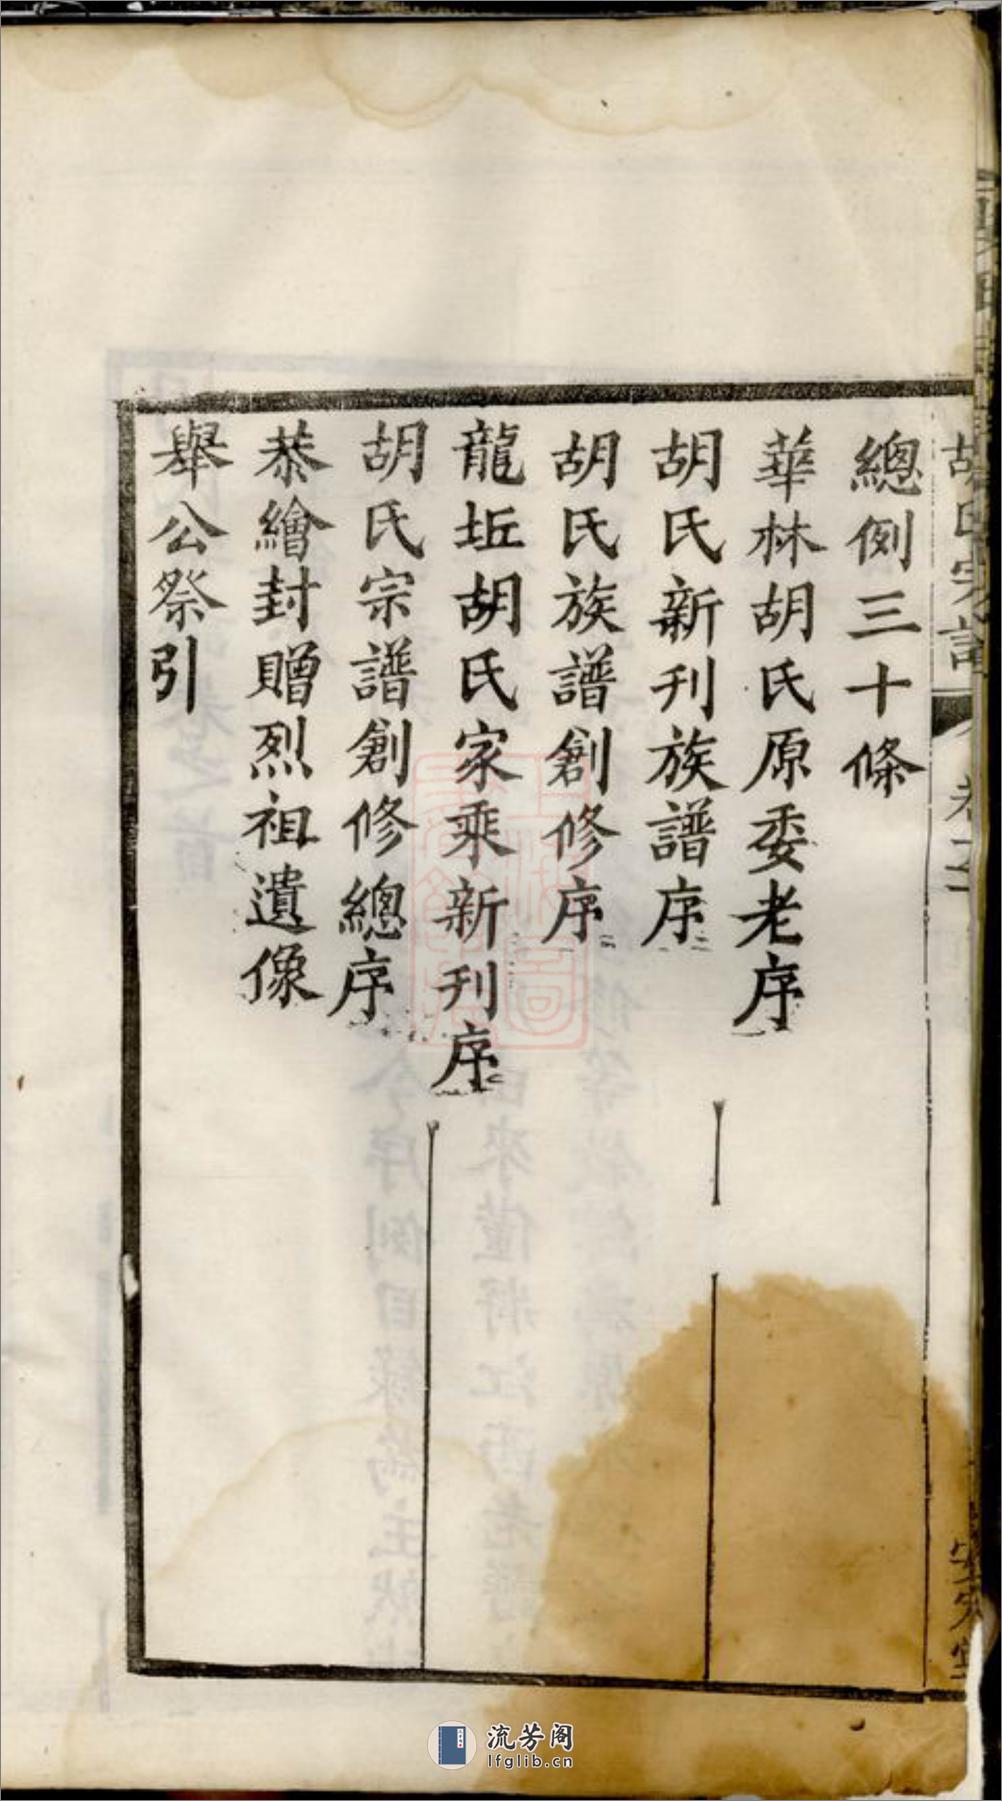 胡氏宗譜
卷之
總例三十條
華林胡氏原委老序
胡氏新刊族譜序
胡氏族譜創修序
龍坵胡氏家乘新刊序
胡氏宗譜創修總序
恭繪封贈烈祖遺像
舉公祭引
流芳阁
lfglib.cn